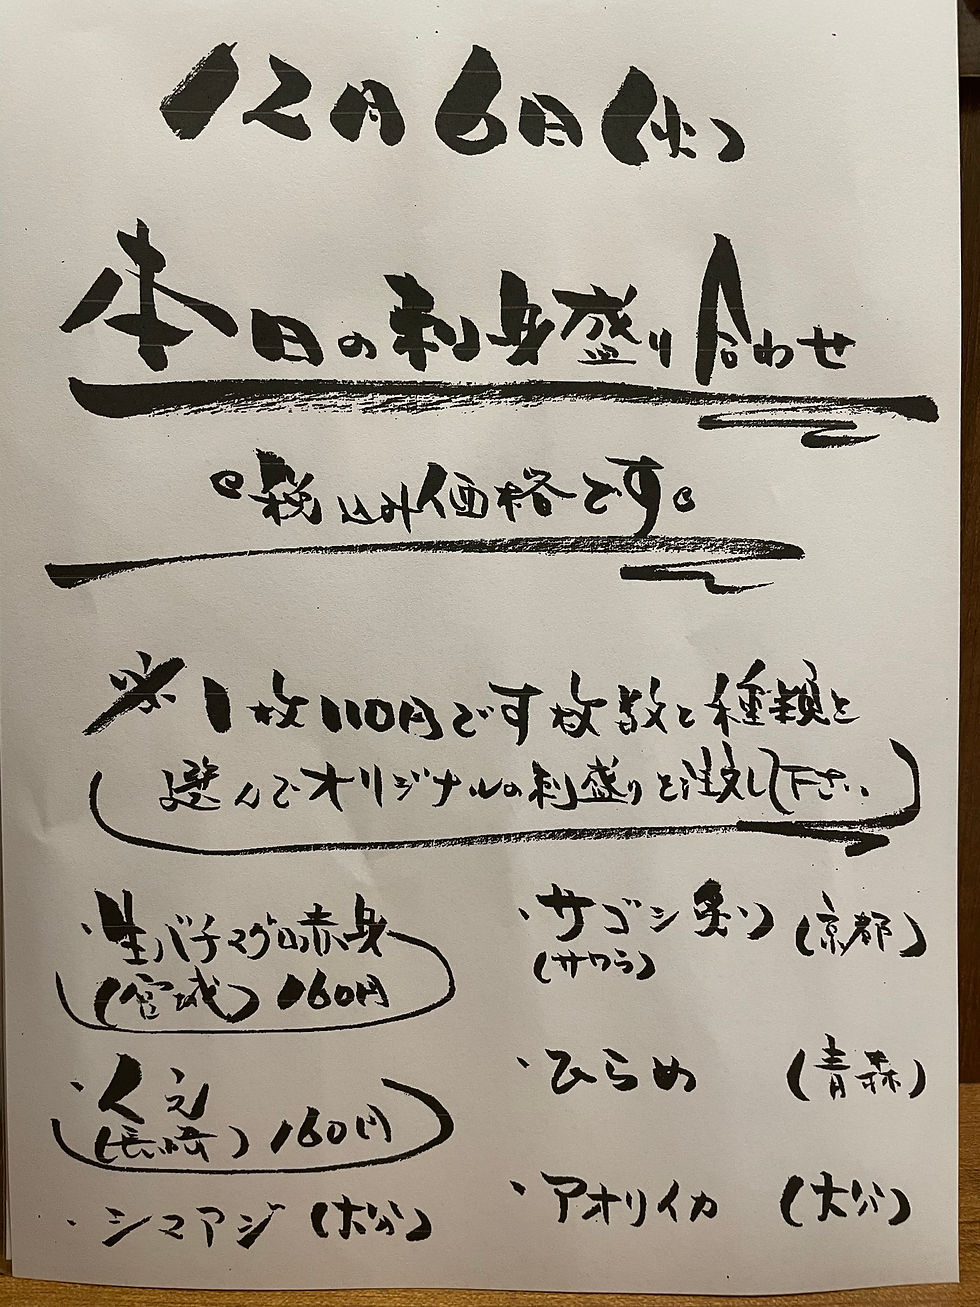 12月6日(火)
本日の刺身盛り合わせ
。税込み価格です。
※1枚110円です枚数と種類を
選んでオリジナルの刺盛りを注文し下さい
・生バチマグロ赤身
(宮城) 160円
・くえ
(長崎) 160円
・シマアジ (大分)
・サゴシ炙り (京都)
(サワラ)
・ひらめ (青森)
・アオリイカ (大分)